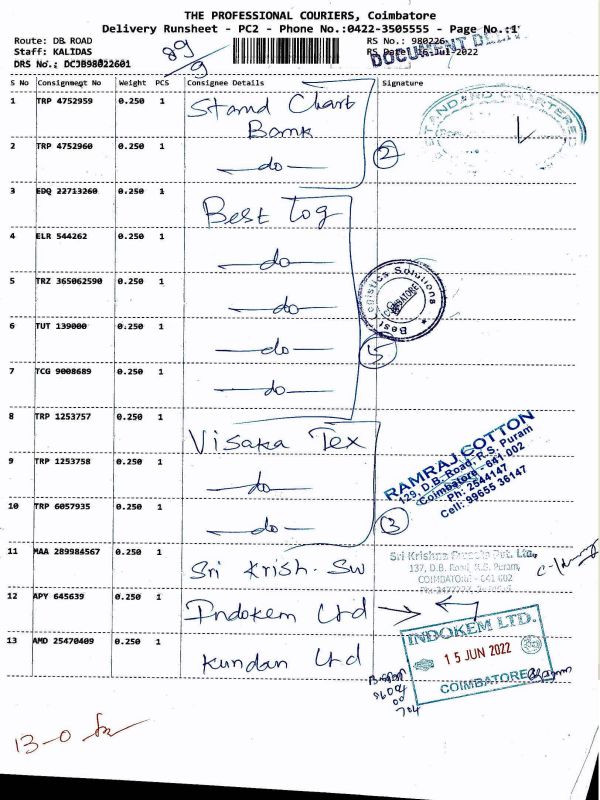 THE PROFESSIONAL COURIERS, Coimbatore
Delivery Runsheet - PC2 - Phone No.:0422-3505555 - Page No.:1
Route: DB ROAD
Staff: KALIDAS
DRS No.: DCJB98022601
89/9
RS No.: 980226
RS Date: 16-Jul-2022
DOCUMENT
S No Consignment No Weight PCS Consignee Details Signature
1 TRP 4752959 0.250 1 Stand Chart Bank
2 TRP 4752960 0.250 1 —do—
2
STANDARD CHARTERED
3 EDQ 22713260 0.250 1 Best Log
4 ELR 544262 0.250 1 —do—
5 TRZ 365062590 0.250 1 —do—
Best Logistics Solutions
COIMBATORE
6 TUT 139000 0.250 1 —do—
5
7 TCG 9008689 0.250 1 —do—
8 TRP 1253757 0.250 1 Visaka Tex
9 TRP 1253758 0.250 1 —do—
RAMRAJ COTTON
129, D.B. Road, R.S. Puram
Coimbatore - 641 002
Ph: 2544147
Cell: 99655 36147
10 TRP 6057935 0.250 1 —do—
3
11 MAA 289984567 0.250 1 Sri Krish. Sw
Sri Krishna Pvt. Ltd.,
137, D.B. Road, R.S. Puram,
COIMBATORE - 641 002
12 APY 645639 0.250 1 Indokem Ltd
13 AMD 25470409 0.250 1 Kundan Ltd
INDOKEM LTD.
15 JUN 2022
COIMBATORE
13-0